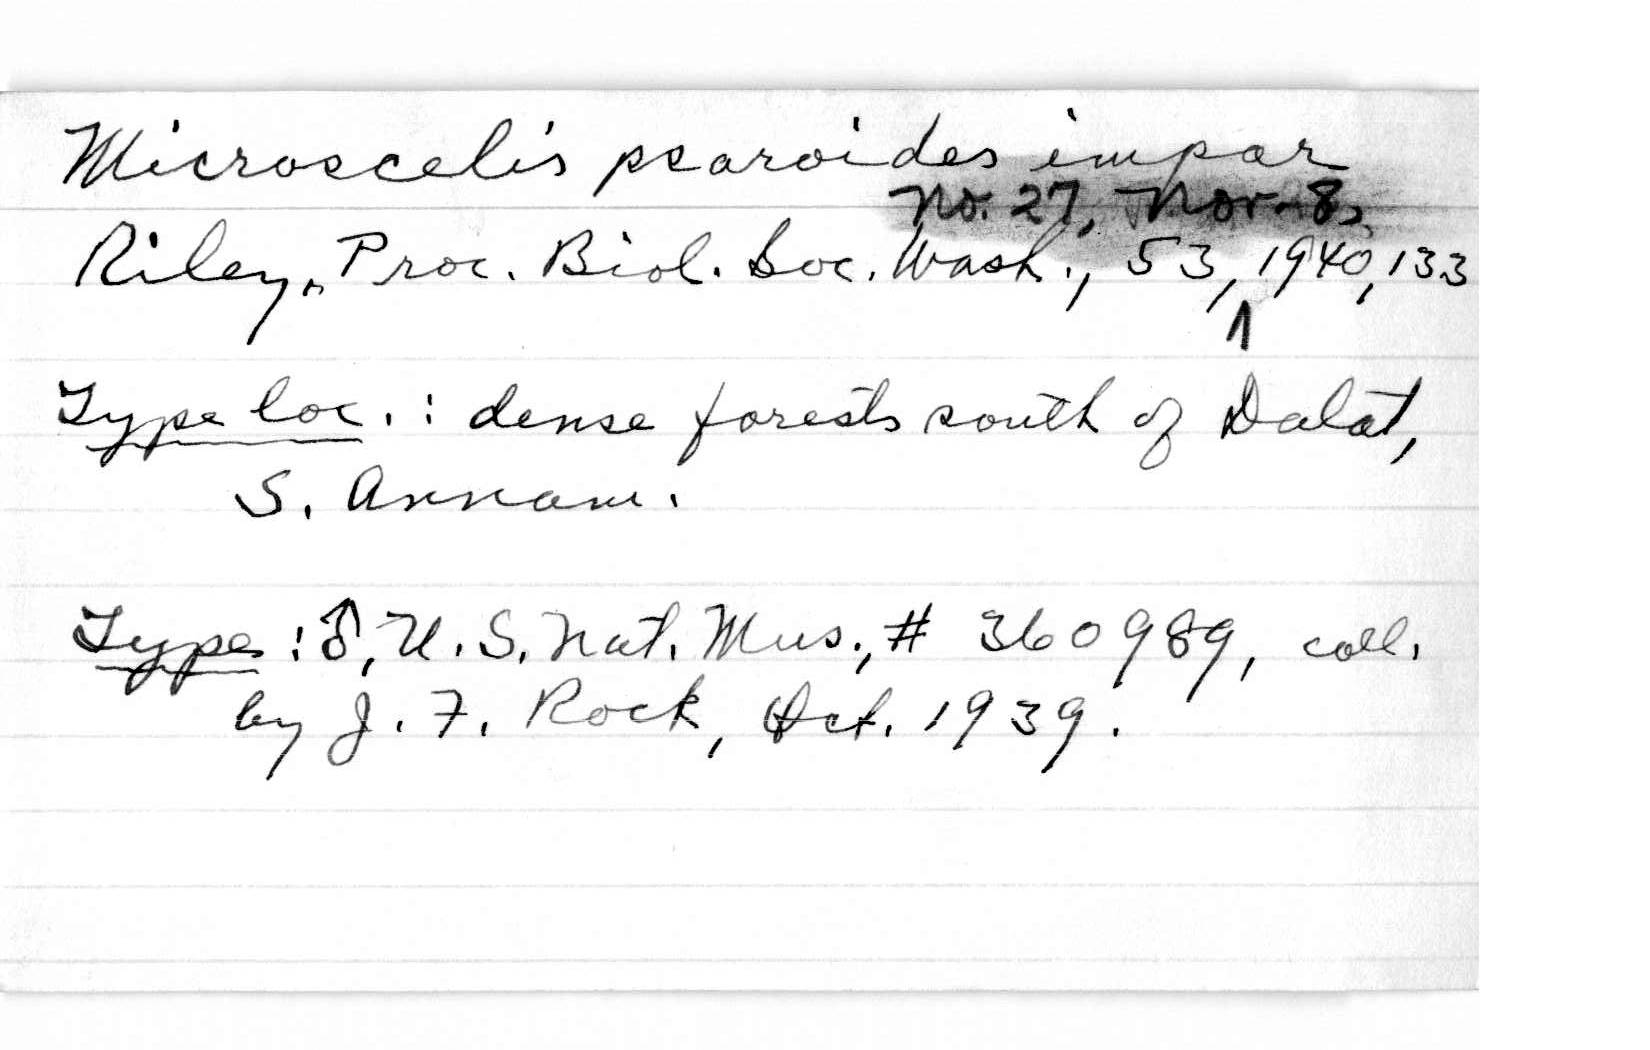 Microscelis psaroides impar
no. 27, Nov. 8,
Riley, Proc. Biol. Soc. Wash., 53, 1940, 133
Type loc.: dense forests south of Dalat,
S. Annam.
Type: ♂, U.S. Nat. Mus., # 360989, coll.
by J. F. Rock, Oct. 1939.